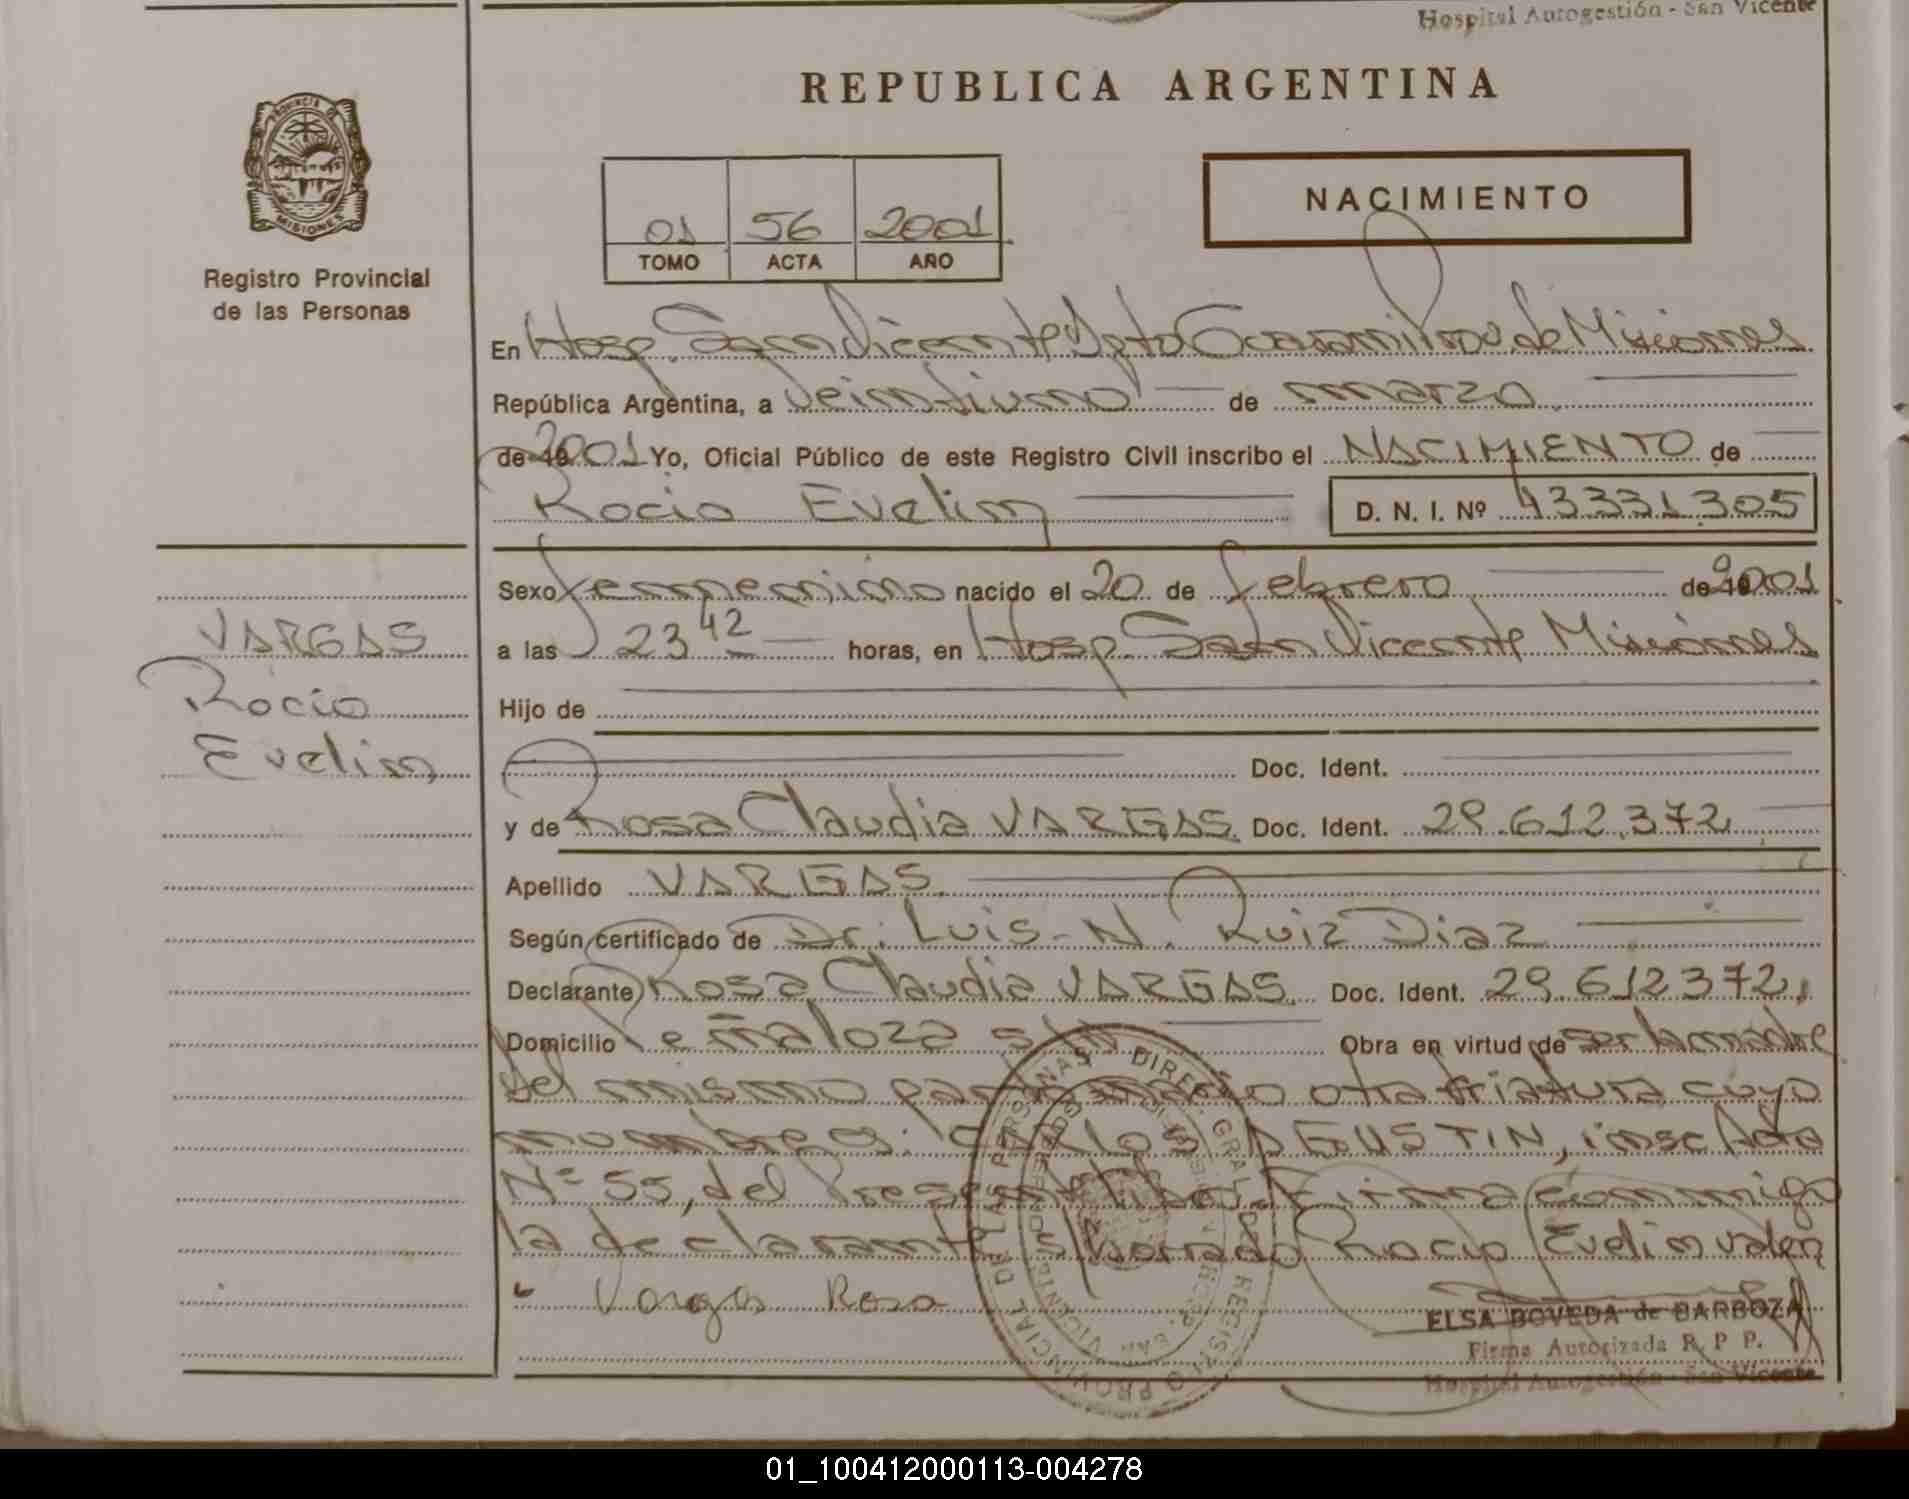 Hospital Autogestión - San Vicente
REPUBLICA ARGENTINA
PROVINCIA DE
MISIONES
Registro Provincial
de las Personas
01 56 2001
TOMO ACTA AÑO
NACIMIENTO
En Hosp. San Vicente Dpto Guaraní Prov. de Misiones
República Argentina, a veintiuno de marzo
de 19 2001 Yo, Oficial Público de este Registro Civil inscribo el NACIMIENTO de
Rocio Evelin D. N. I. Nº 43331305
Sexo femenino nacido el 20 de febrero de 19 2001
a las 23 42 horas, en Hosp. San Vicente Misiones
Hijo de
Doc. Ident.
y de Rosa Claudia VARGAS Doc. Ident. 29.612.372
Apellido VARGAS
Según certificado de Dr. Luis N. Ruiz Diaz
Declarante Rosa Claudia VARGAS Doc. Ident. 29.612372,
Domicilio Peñaloza s/n Obra en virtud de ser la madre
del mismo parto nacio otra criatura cuyo
nombre es: CARLOS AGUSTIN, insc. Acta
Nº 55, del Presente Libro. Firma conmigo
la declarante. S/borrado Rocio Evelin valen
Vargas Rosa
ELSA BOVEDA de BARBOZA
Firma Autorizada R. P. P.
Hospital Autogestión - San Vicente
VARGAS
Rocio
Evelin
01_100412000113-004278